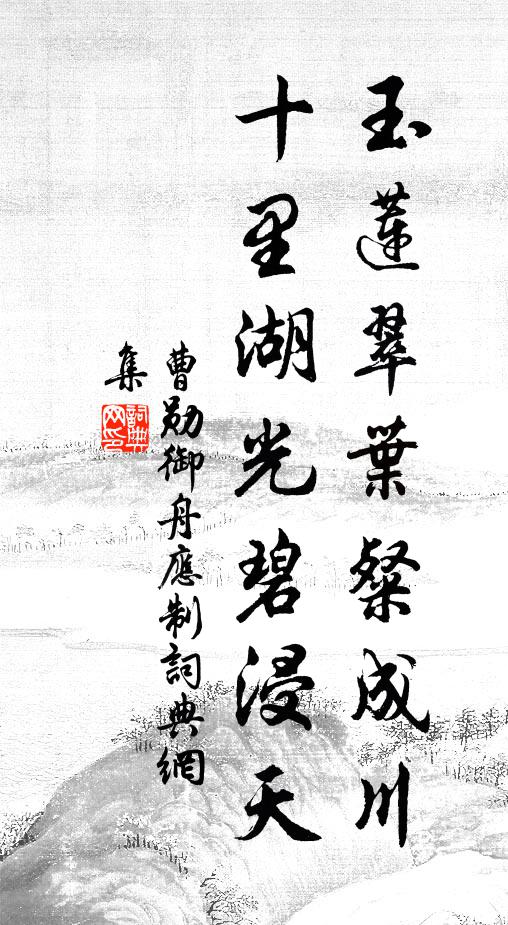 玉蓮翠葉粲成川
十里湖光碧浸天
曹勛御舟應制詞典網
集
詞典网印